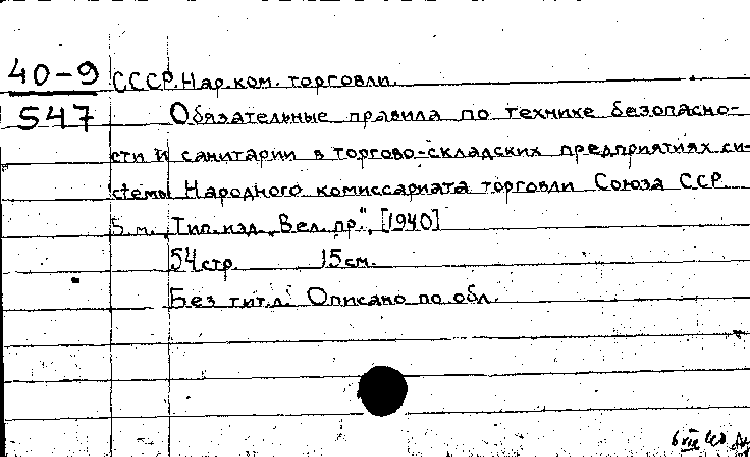 40-9 СССР. Нар. ком. торговли.
547 Обязательные правила по технике безопасно-
сти и санитарии в торгово-складских предприятиях си-
стемы Народного комиссариата торговли Союза ССР.
Б. м., Тип. изд. „Вел. пр.", [1940]
54 стр. 15 см.
Без тит. л. Описано по обл.